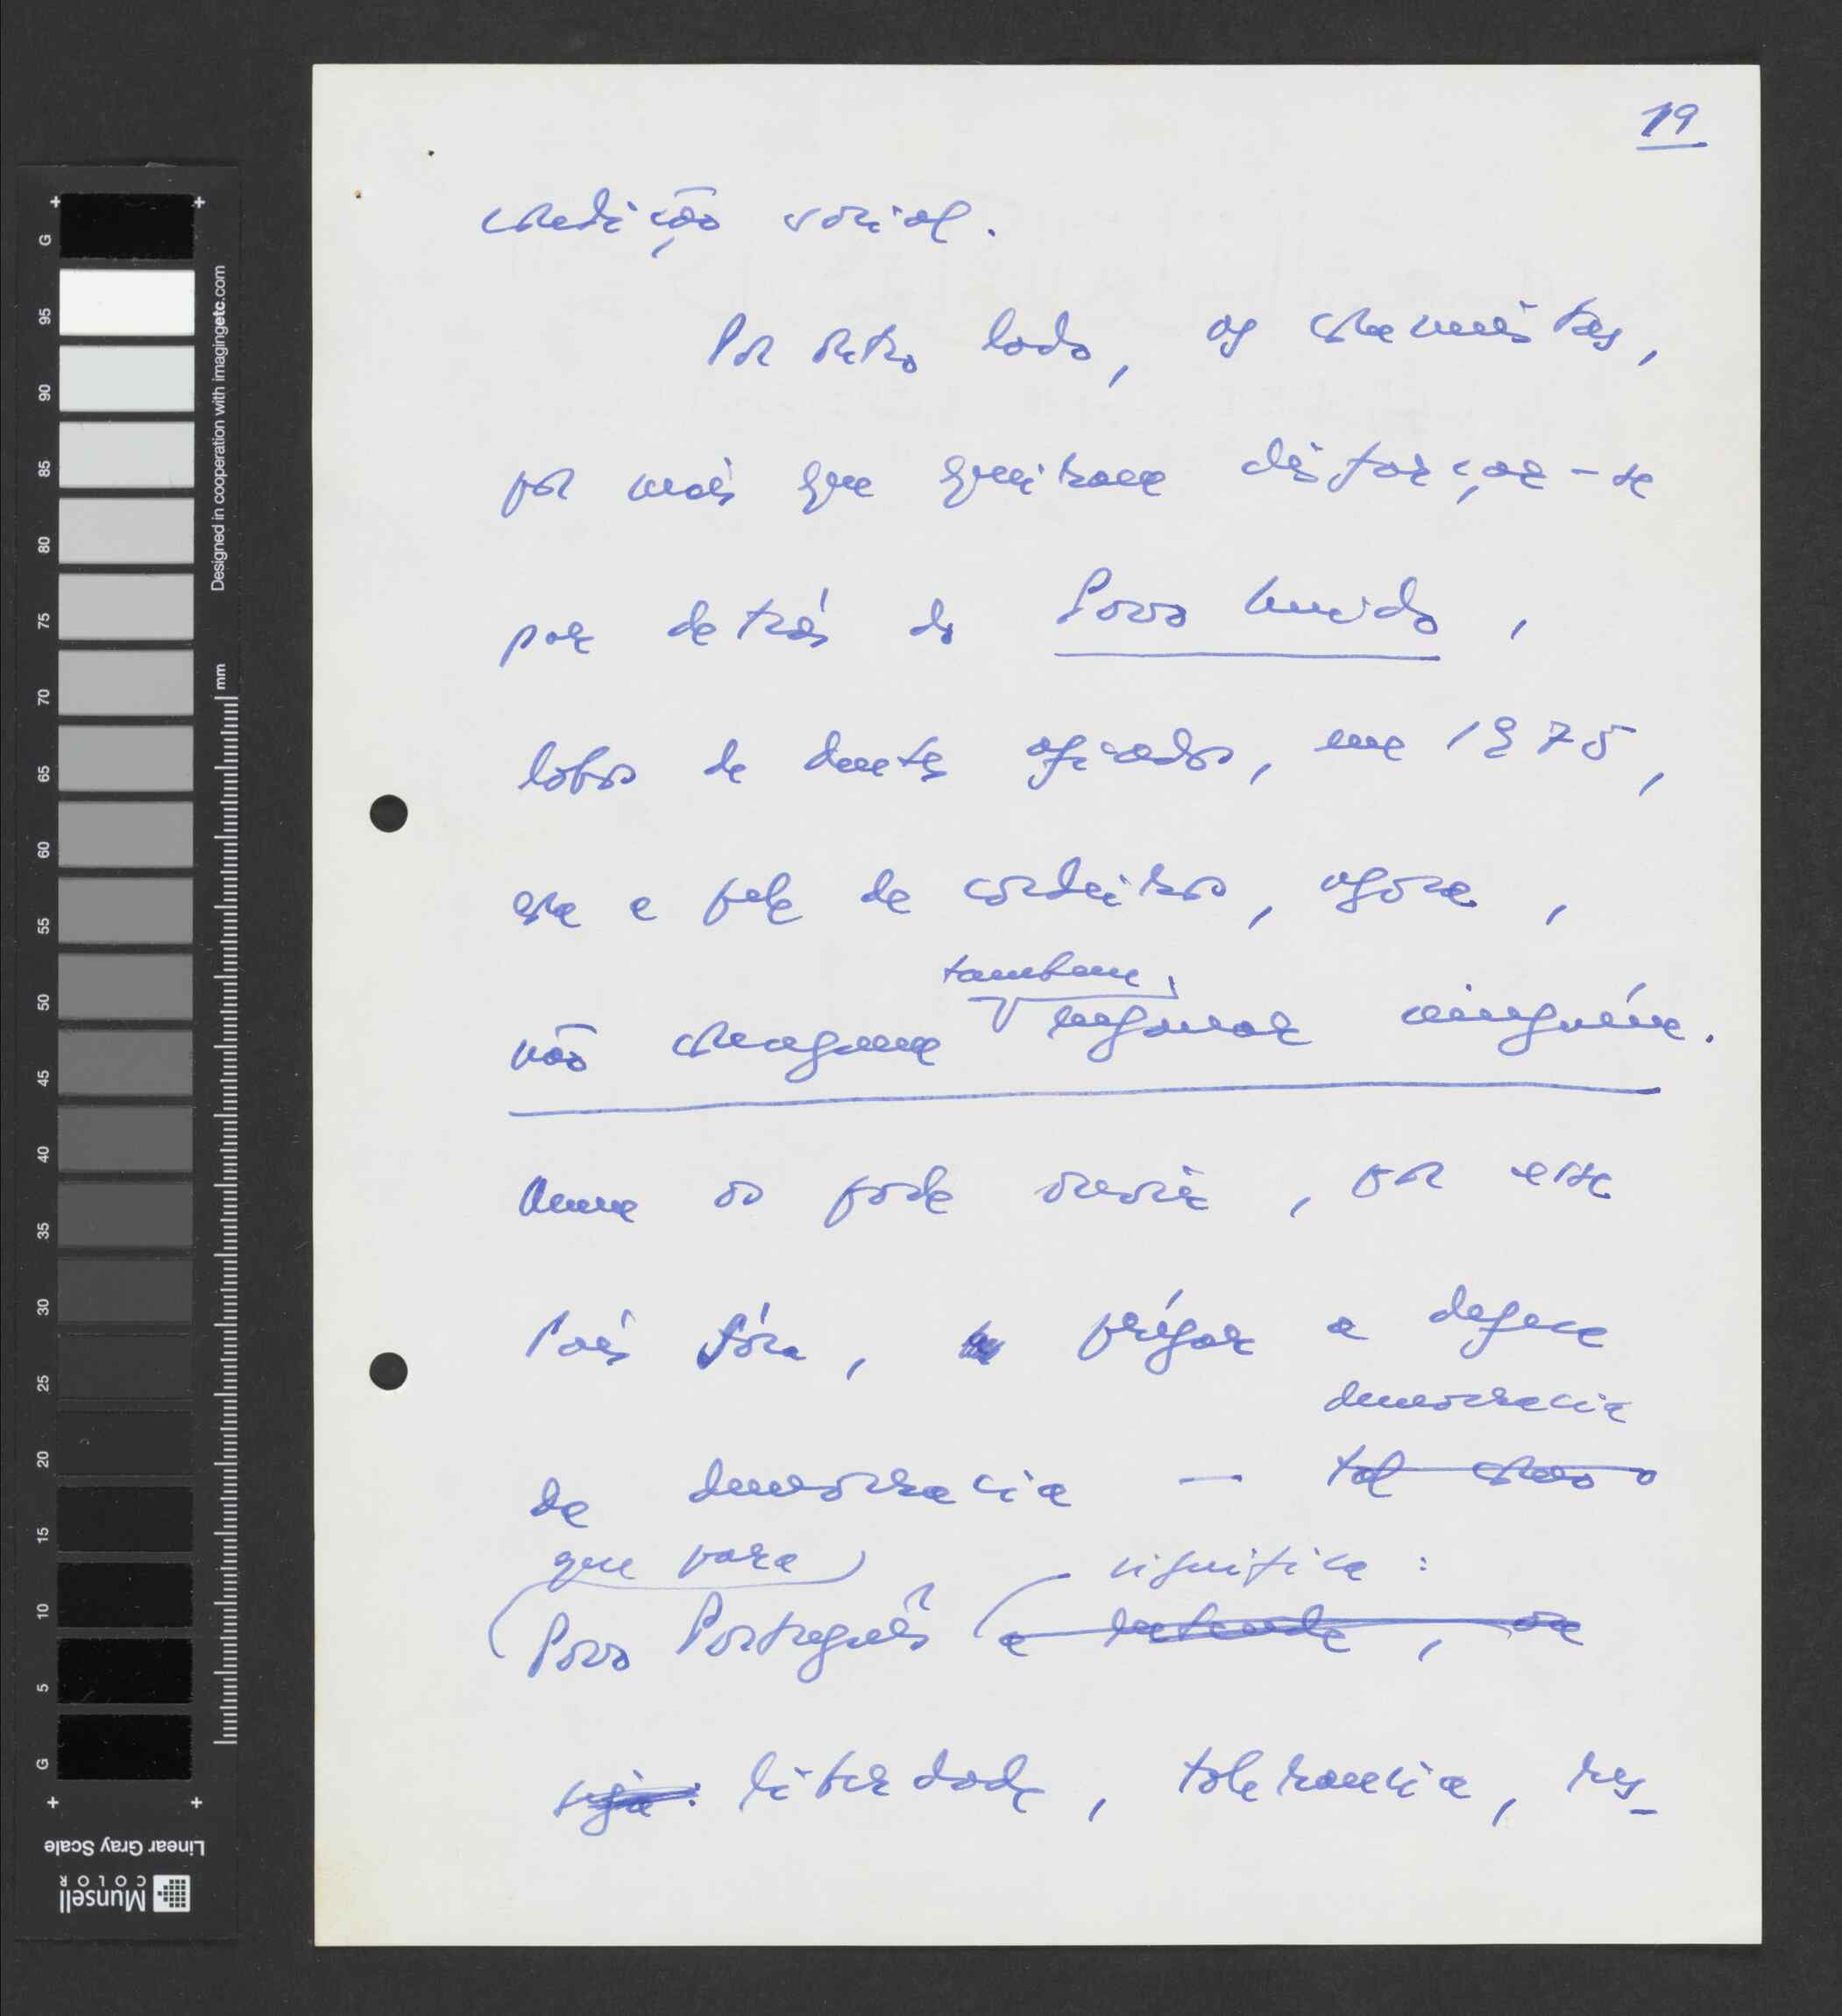 19
condição social.
Por outro lado, os comunistas,
por mais que queiram disfarçar-se
por detrás do Povo Unido,
lobos de dentes afiados, em 1975,
com a pele de cordeiros, agora,
também
não conseguem enganar ninguém.
Quem os pode ouvir, por esse
País fóra, a prégar a defesa
democracia
da democracia — tal como o
que para significa:
Povo Português a entende, ou
seja: liberdade, tolerancia, res-
G 95 90 85 80 75 70 65 60 55 50 45 40 35 30 25 20 15 10 5 G
Designed in cooperation with imagingetc.com
mm
Linear Gray Scale
Munsell
COLOR